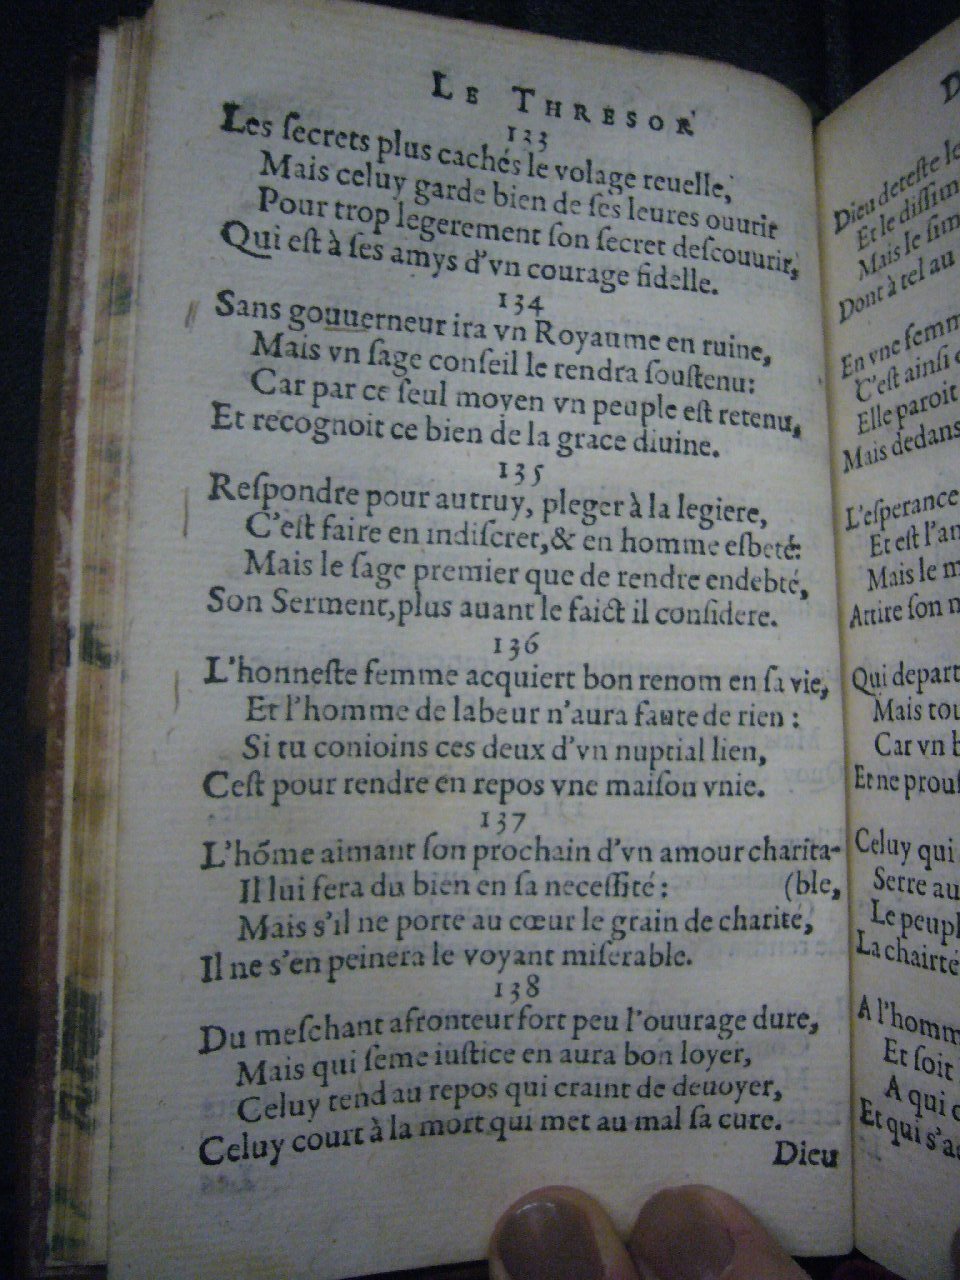 LE THRESOR
133
Les ſecrets plus cachés le volage reuelle,
Mais celuy garde bien de ſes leures ouurir
Pour trop legerement ſon ſecret deſcouurir,
Qui eſt à ſes amys d'vn courage fidelle.
134
Sans gouuerneur ira vn Royaume en ruine,
Mais vn ſage conſeil le rendra ſouſtenu:
Car par ce ſeul moyen vn peuple eſt retenu,
Et recognoit ce bien de la grace diuine.
135
Reſpondre pour autruy, pleger à la legiere,
C'eſt faire en indiſcret, & en homme esbeté:
Mais le ſage premier que de rendre endebté,
Son Serment, plus auant le faict il conſidere.
136
L'honneſte femme acquiert bon renom en ſa vie,
Et l'homme de labeur n'aura faute de rien:
Si tu conioins ces deux d'vn nuptial lien,
Ceſt pour rendre en repos vne maiſon vnie.
137
L'hõme aimant ſon prochain d'vn amour charita-
Il lui fera du bien en ſa neceſſité: (ble,
Mais s'il ne porte au cœur le grain de charité,
Il ne s'en peinera le voyant miſerable.
138
Du meſchant afronteur fort peu l'ouurage dure,
Mais qui ſeme iuſtice en aura bon loyer,
Celuy tend au repos qui craint de deuoyer,
Celuy court à la mort qui met au mal ſa cure.
Dieu
D
Dieu deteſte
Et le
Mais le
Dont à tel au
En vne
C'eſt ainſi
Elle paroit
Mais dedans
L'eſperance
Et eſt
Mais le
Attire ſon
Qui
Mais
Car vn
Et ne
Celuy qui
Serre au
Le
La chairté
A
Et ſoit
A qui
Et qui